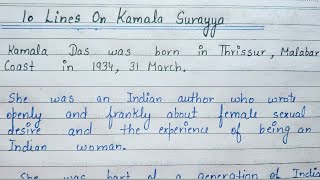 10 Lines On Kamala Surayya
Kamala Das was born in Thrissur, Malabar
Coast in 1934, 31 March.
She was an Indian author who wrote
openly and frankly about female sexual
desire and the experience of being an
Indian woman.
She was part of a generation of Indian